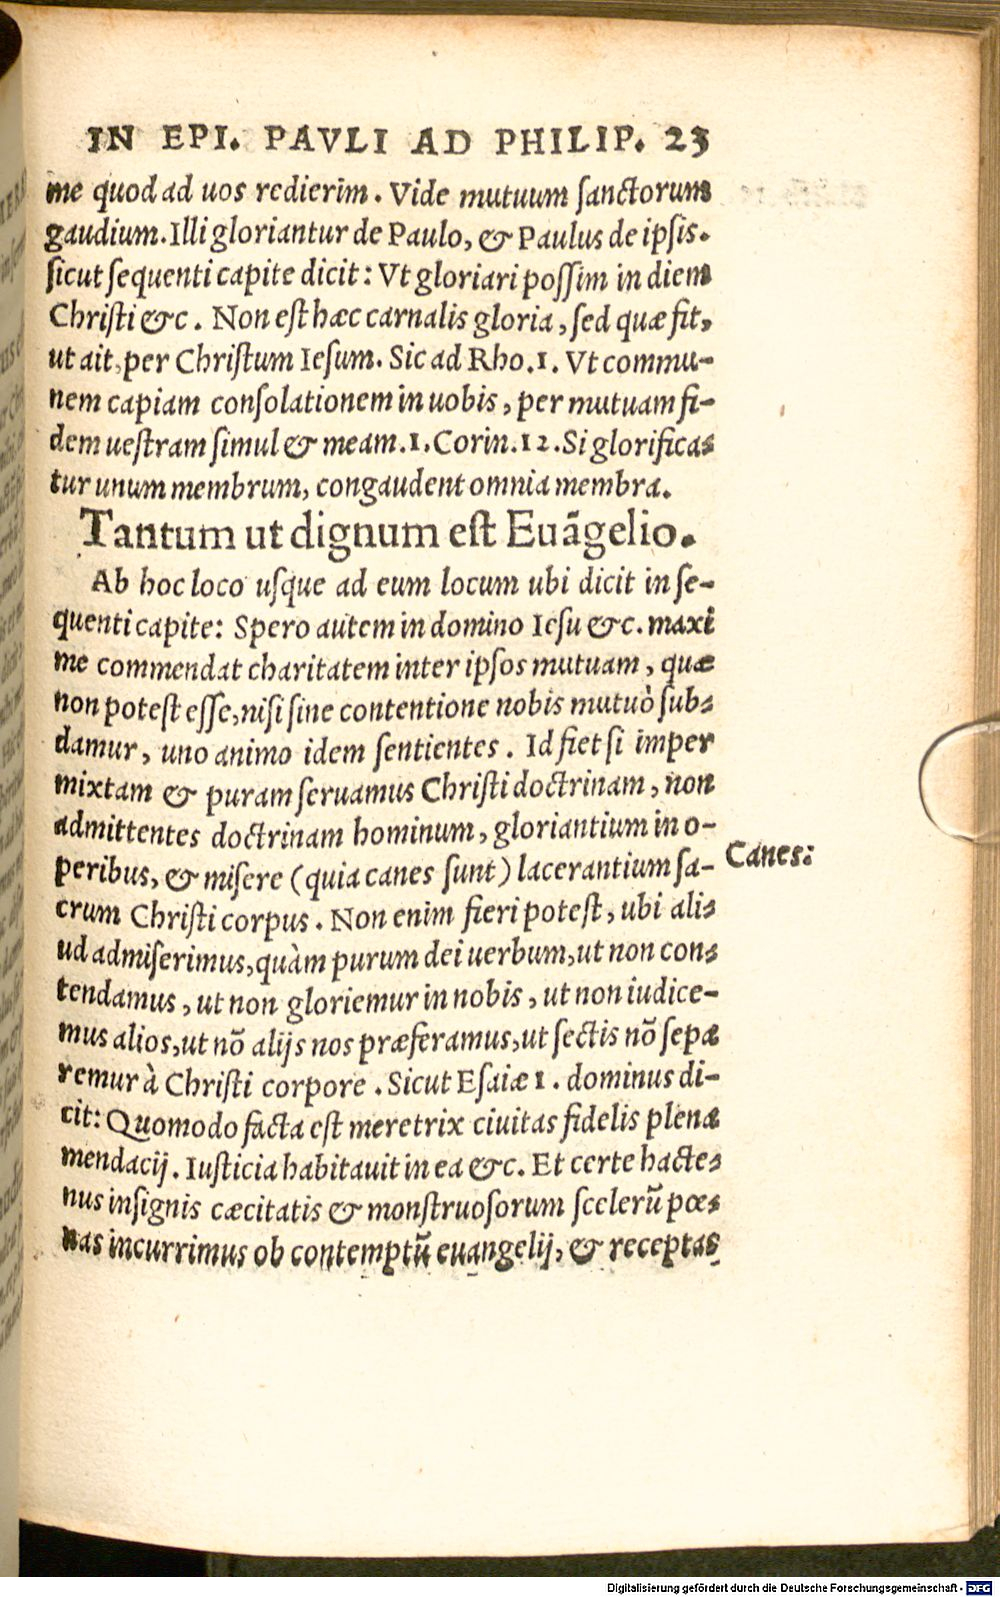 IN EPI. PAVLI AD PHILIP. 23
me quod ad uos redierim. Vide mutuum ſanctorum
gaudium. Illi gloriantur de Paulo, & Paulus de ipſis.
ſicut ſequenti capite dicit: Vt gloriari poſſim in diem
Chriſti &c. Non eſt hæc carnalis gloria, ſed quæ fit,
ut ait, per Chriſtum Ieſum. Sic ad Rho. 1. Vt commu-
nem capiam conſolationem in uobis, per mutuam fi-
dem ueſtram ſimul & meam. 1. Corin. 12. Si glorifica-
tur unum membrum, congaudent omnia membra.
Tantum ut dignum eſt Euãgelio.
Ab hoc loco uſque ad eum locum ubi dicit in ſe-
quenti capite: Spero autem in domino Ieſu &c. maxi
me commendat charitatem inter ipſos mutuam, quæ
non poteſt eſſe, niſi ſine contentione nobis mutuò ſub-
damur, uno animo idem ſentientes. Id fiet ſi imper
mixtam & puram ſeruamus Chriſti doctrinam, non
admittentes doctrinam hominum, gloriantium in o-
peribus, & miſere (quia canes ſunt) lacerantium ſa-
Canes:
crum Chriſti corpus. Non enim fieri poteſt, ubi ali-
ud admiſerimus, quàm purum dei uerbum, ut non con-
tendamus, ut non gloriemur in nobis, ut non iudice-
mus alios, ut nõ alijs nos præferamus, ut ſectis nõ ſepa
remur à Chriſti corpore. Sicut Eſaiæ 1. dominus di-
cit: Quomodo facta eſt meretrix ciuitas fidelis plena
mendacij. Iuſticia habitauit in ea &c. Et certe hacte-
nus inſignis cæcitatis & monſtruoſorum ſcelerũ pœ-
nas incurrimus ob contemptũ euangelij, & receptas
Digitalisierung gefördert durch die Deutsche Forschungsgemeinschaft - DFG